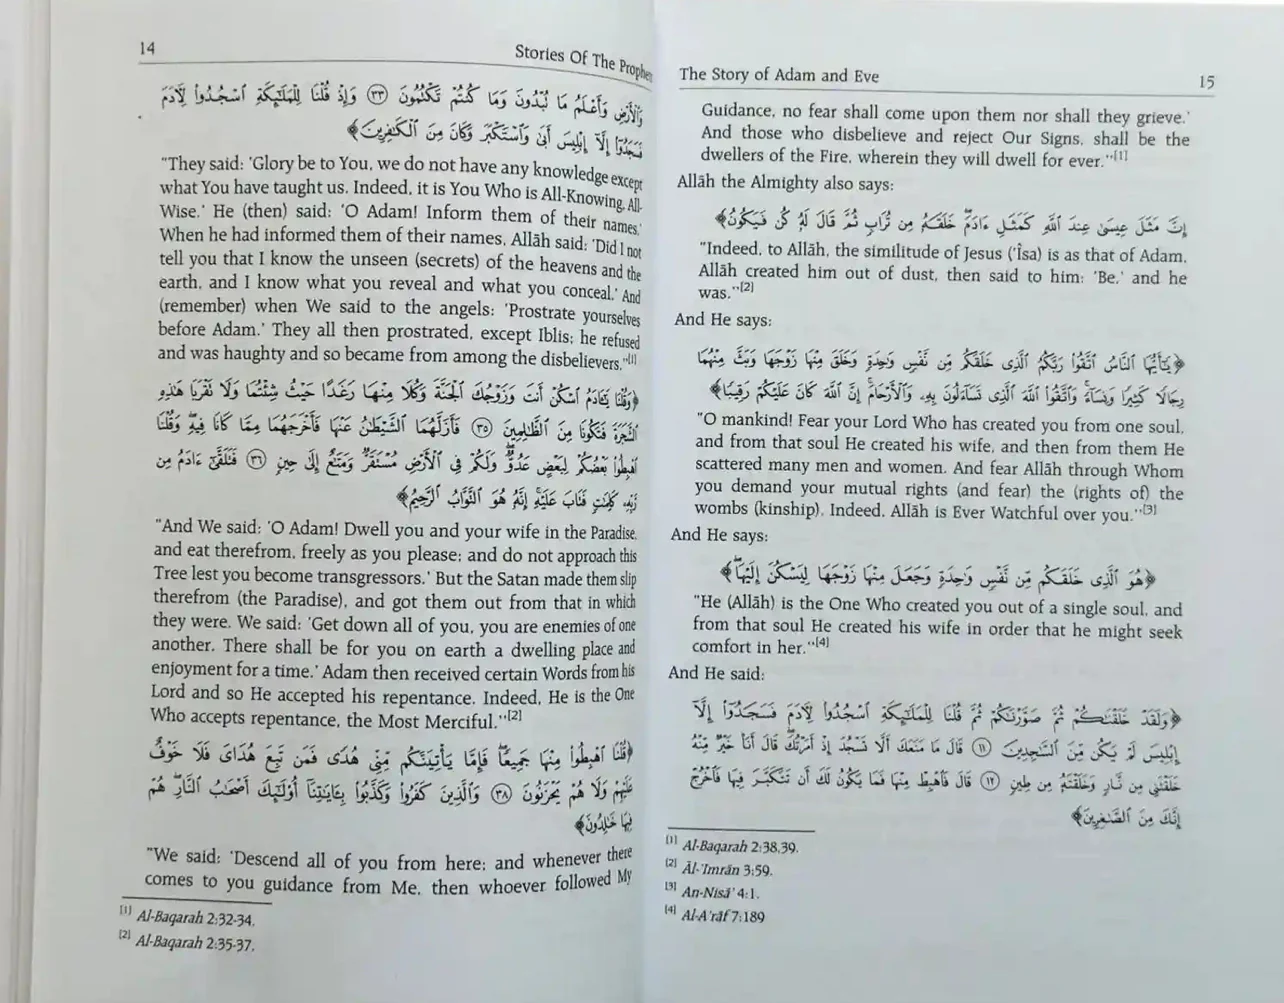 14
Stories Of The Prophets
وَٱلْأَرْضِ وَأَعْلَمُ مَا تُبْدُونَ وَمَا كُنتُمْ تَكْتُمُونَ ﴿٣٣﴾ وَإِذْ قُلْنَا لِلْمَلَٰٓئِكَةِ ٱسْجُدُوا۟ لِـَٔادَمَ
فَسَجَدُوٓا۟ إِلَّآ إِبْلِيسَ أَبَىٰ وَٱسْتَكْبَرَ وَكَانَ مِنَ ٱلْكَٰفِرِينَ﴾
"They said: 'Glory be to You, we do not have any knowledge except
what You have taught us. Indeed, it is You Who is All-Knowing, All-
Wise.' He (then) said: 'O Adam! Inform them of their names.'
When he had informed them of their names, Allāh said: 'Did I not
tell you that I know the unseen (secrets) of the heavens and the
earth, and I know what you reveal and what you conceal.' And
(remember) when We said to the angels: 'Prostrate yourselves
before Adam.' They all then prostrated, except Iblis; he refused
and was haughty and so became from among the disbelievers."[1]
﴿وَقُلْنَا يَٰٓـَٔادَمُ ٱسْكُنْ أَنتَ وَزَوْجُكَ ٱلْجَنَّةَ وَكُلَا مِنْهَا رَغَدًا حَيْثُ شِئْتُمَا وَلَا نَقْرَبَا هَٰذِهِ
ٱلشَّجَرَةَ فَتَكُونَا مِنَ ٱلظَّٰلِمِينَ ﴿٣٥﴾ فَأَزَلَّهُمَا ٱلشَّيْطَٰنُ عَنْهَا فَأَخْرَجَهُمَا مِمَّا كَانَا فِيهِ وَقُلْنَا
ٱهْبِطُوا۟ بَعْضُكُمْ لِبَعْضٍ عَدُوٌّ وَلَكُمْ فِى ٱلْأَرْضِ مُسْتَقَرٌّ وَمَتَٰعٌ إِلَىٰ حِينٍ ﴿٣٦﴾ فَتَلَقَّىٰٓ ءَادَمُ مِن
رَّبِّهِۦ كَلِمَٰتٍ فَتَابَ عَلَيْهِ إِنَّهُۥ هُوَ ٱلتَّوَّابُ ٱلرَّحِيمُ﴾
"And We said: 'O Adam! Dwell you and your wife in the Paradise,
and eat therefrom, freely as you please; and do not approach this
Tree lest you become transgressors.' But the Satan made them slip
therefrom (the Paradise), and got them out from that in which
they were. We said: 'Get down all of you, you are enemies of one
another. There shall be for you on earth a dwelling place and
enjoyment for a time.' Adam then received certain Words from his
Lord and so He accepted his repentance. Indeed, He is the One
Who accepts repentance, the Most Merciful."[2]
﴿قُلْنَا ٱهْبِطُوا۟ مِنْهَا جَمِيعًا فَإِمَّا يَأْتِيَنَّكُم مِّنِّى هُدًى فَمَن تَبِعَ هُدَاىَ فَلَا خَوْفٌ
عَلَيْهِمْ وَلَا هُمْ يَحْزَنُونَ ﴿٣٨﴾ وَٱلَّذِينَ كَفَرُوا۟ وَكَذَّبُوا۟ بِـَٔايَٰتِنَآ أُو۟لَٰٓئِكَ أَصْحَٰبُ ٱلنَّارِ هُمْ
فِيهَا خَٰلِدُونَ﴾
"We said: 'Descend all of you from here; and whenever there
comes to you guidance from Me, then whoever followed My
[1] Al-Baqarah 2:32-34.
[2] Al-Baqarah 2:35-37.
The Story of Adam and Eve
15
Guidance, no fear shall come upon them nor shall they grieve.'
And those who disbelieve and reject Our Signs, shall be the
dwellers of the Fire, wherein they will dwell for ever."[1]
Allāh the Almighty also says:
﴿إِنَّ مَثَلَ عِيسَىٰ عِندَ ٱللَّهِ كَمَثَلِ ءَادَمَ خَلَقَهُۥ مِن تُرَابٍ ثُمَّ قَالَ لَهُۥ كُن فَيَكُونُ﴾
"Indeed, to Allāh, the similitude of Jesus ('Îsa) is as that of Adam.
Allāh created him out of dust, then said to him: 'Be,' and he
was."[2]
And He says:
﴿يَٰٓأَيُّهَا ٱلنَّاسُ ٱتَّقُوا۟ رَبَّكُمُ ٱلَّذِى خَلَقَكُم مِّن نَّفْسٍ وَٰحِدَةٍ وَخَلَقَ مِنْهَا زَوْجَهَا وَبَثَّ مِنْهُمَا
رِجَالًا كَثِيرًا وَنِسَآءً وَٱتَّقُوا۟ ٱللَّهَ ٱلَّذِى تَسَآءَلُونَ بِهِۦ وَٱلْأَرْحَامَ إِنَّ ٱللَّهَ كَانَ عَلَيْكُمْ رَقِيبًا﴾
"O mankind! Fear your Lord Who has created you from one soul,
and from that soul He created his wife, and then from them He
scattered many men and women. And fear Allāh through Whom
you demand your mutual rights (and fear) the (rights of) the
wombs (kinship). Indeed, Allāh is Ever Watchful over you."[3]
And He says:
﴿هُوَ ٱلَّذِى خَلَقَكُم مِّن نَّفْسٍ وَٰحِدَةٍ وَجَعَلَ مِنْهَا زَوْجَهَا لِيَسْكُنَ إِلَيْهَا﴾
"He (Allāh) is the One Who created you out of a single soul, and
from that soul He created his wife in order that he might seek
comfort in her."[4]
And He said:
﴿وَلَقَدْ خَلَقْنَٰكُمْ ثُمَّ صَوَّرْنَٰكُمْ ثُمَّ قُلْنَا لِلْمَلَٰٓئِكَةِ ٱسْجُدُوا۟ لِـَٔادَمَ فَسَجَدُوٓا۟ إِلَّآ
إِبْلِيسَ لَمْ يَكُن مِّنَ ٱلسَّٰجِدِينَ ﴿١١﴾ قَالَ مَا مَنَعَكَ أَلَّا تَسْجُدَ إِذْ أَمَرْتُكَ قَالَ أَنَا۠ خَيْرٌ مِّنْهُ
خَلَقْتَنِى مِن نَّارٍ وَخَلَقْتَهُۥ مِن طِينٍ ﴿١٢﴾ قَالَ فَٱهْبِطْ مِنْهَا فَمَا يَكُونُ لَكَ أَن تَتَكَبَّرَ فِيهَا فَٱخْرُجْ
إِنَّكَ مِنَ ٱلصَّٰغِرِينَ﴾
[1] Al-Baqarah 2:38,39.
[2] Āl-'Imrān 3:59.
[3] An-Nisā' 4:1.
[4] Al-A'rāf 7:189